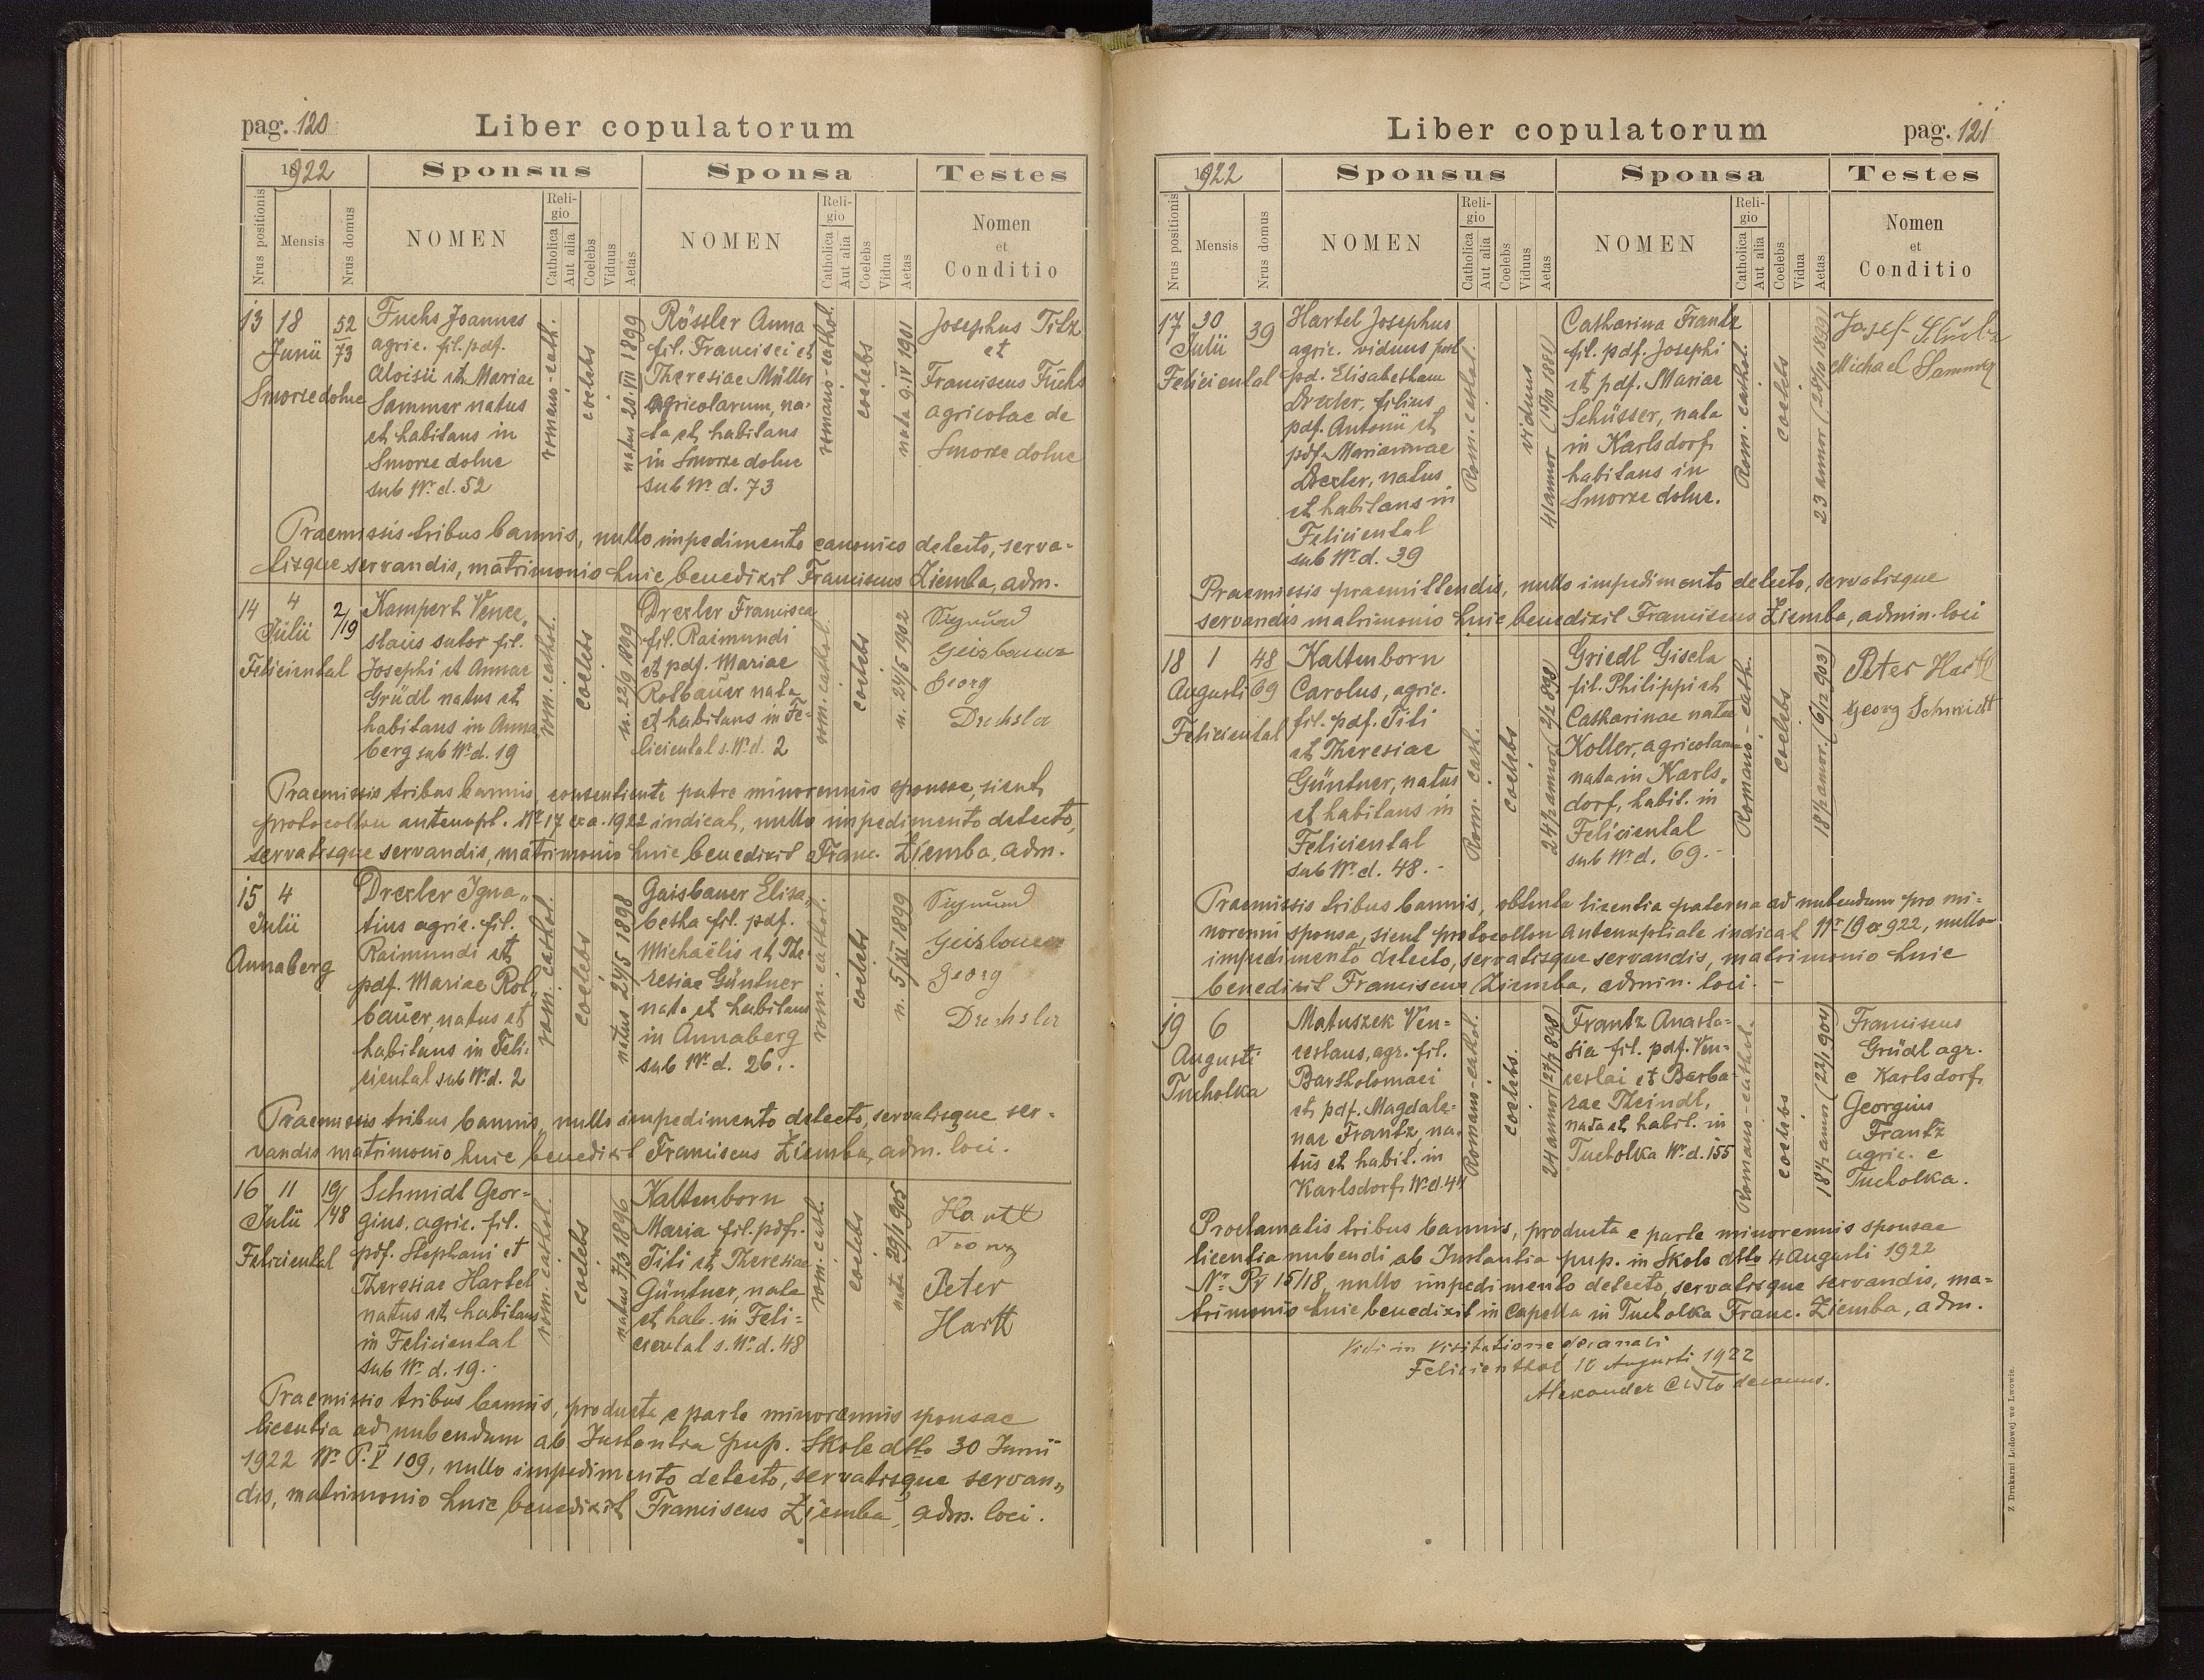 pag. 120
Liber copulatorum
1922
Sponsus
Sponsa
Testes
Nrus positionis
Mensis
Nrus domus
NOMEN
Religio
Catholica
Aut alia
Coelebs
Viduus
Aetas
NOMEN
Religio
Catholica
Aut alia
Coelebs
Vidua
Aetas
Nomen
et
Conditio
13
18
Junii
Smorze dolne
52
73
Fuchs Joannes
agric. fil. pdf.
Aloisii et Mariae
Sammer natus
et habitans in
Smorze dolne
sub Nr. d. 52
romano-cath.
coelebs
natus 20.VII 1899
Rössler Anna
fil. Francisci et
Theresiae Müller
agricolarum, na-
ta et habitans
in Smorze dolne
sub Nr. d. 73
romano-cathol.
coelebs
nata 9.IV 1901
Josephus Titz
et
Franciscus Fuchs
agricolae de
Smorze dolne
Praemissis tribus bannis, nullo impedimento canonico detecto, serva-
tisque servandis, matrimonio huic benedixit Franciscus Ziemba, adm.
14
4
Julii
Feliciental
2/19
Kampert Vence„
slaus sutor fil.
Josephi et Annae
Grüdl natus et
habitans in Anna
berg sub Nr. d. 19
rom. cathol.
coelebs
n. 22/9 1899
Drexler Francisca
fil. Raimundi
et pdf. Mariae
Rotbauer nata
et habitans in Fe-
liciental s. Nr. d. 2
rom. cathol.
coelebs
n. 24/5 1902
Sigmund
Geisbauer
Georg
Drechsler
Praemissis tribus bannis, consentiente patre minorennis sponsae, sicut
protocollon antenupt. Nr 17 ex a. 1922 indicat, nullo impedimento detecto,
servatisque servandis, matrimonio huic benedixit Franc. Ziemba, adm.
15
4
Julii
Annaberg
Drexler Igna„
tius agric. fil.
Raimundi et
pdf. Mariae Rot„
bauer, natus et
habitans in Feli-
ciental sub Nr. d. 2
rom. cathol.
coelebs
natus 24/5 1898
Gaisbauer Elisa„
betha fil. pdf.
Michaëlis et The-
resiae Güntner
nata et habitans
in Annaberg
sub Nr. d. 26..
rom. cathol.
coelebs
n. 5/XI 1899
Sigmund
Geisbauer
Georg
Drechsler
Praemissis tribus bannis, nullo impedimento detecto, servatisque ser-
vandis matrimonio huic benedixit Franciscus Ziemba, adm. loci.
16
11
Julii
Feliciental
19/48
Schmidt Geor-
gius, agric. fil.
pdf. Stephani et
Theresiae Hartel
natus et habitans
in Feliciental
sub Nr. d. 19.-
rom. cathol.
coelebs
natus 7/3 1896
Kaltenborn
Maria fil. pdf.
Titi et Theresiae
Güntner, nata
et hab. in Feli-
ciental s. Nr. d. 48
rom.-cath.
coelebs
nata 29/1 905
Hartl
Peter
Hartl
Praemissis tribus bannis, producta e parte minorennis sponsae
licentia ad nubendum ab Instantia pup. Skole dtto 30 Junii
1922 Nr. P. V 109, nullo impedimento detecto, servatisque servan„
dis, matrimonio huic benedixit Franciscus Ziemba, adm. loci.
Liber copulatorum
pag. 121
1922
Sponsus
Sponsa
Testes
Nrus positionis
Mensis
Nrus domus
NOMEN
Religio
Catholica
Aut alia
Coelebs
Viduus
Aetas
NOMEN
Religio
Catholica
Aut alia
Coelebs
Vidua
Aetas
Nomen
et
Conditio
17
30
Julii
Feliciental
39
Hartel Josephus
agric. viduus post
pd. Elisabetham
Drexler, filius
pdf. Antonii et
pdf. Mariannae
Drexler, natus
et habitans in
Feliciental
sub Nr. d. 39
Rom. cathol.
viduus
41 annor (15/10 1881)
Catharina Frantz
fil. pdf. Josephi
et pdf. Mariae
Schüsser, nata
in Karlsdorf
habitans in
Smorze dolne.
Rom. cathol.
coelebs
23 annor (28/10 1899)
Josef
Michael
Praemissis praemittendis, nullo impedimento detecto, servatisque
servandis matrimonio huic benedixit Franciscus Ziemba, admin. loci
18
1
Augusti
Feliciental
48
69
Kaltenborn
Carolus, agric.
fil. pdf. Titi
et Theresiae
Güntner, natus
et habitans in
Feliciental
sub Nr. d. 48.-
Rom. cath.
coelebs
24½ annor (2/2 898)
Griedl Gisela
fil. Philippi et
Catharinae natae
Koller, agricolarum
nata in Karls„
dorf, habit. in
Feliciental
sub Nr. d. 69.-
Romano-cath.
coelebs
18½ annor. (6/12 903)
Peter Hartl
Georg Schmidt
Praemissis tribus bannis, obtenta licentia paterna ad nubendum pro mi-
norenni sponsa, sicut protocollon antenuptiale indicat Nr 19 ex 922, nullo
impedimento detecto, servatisque servandis, matrimonio huic
benedixit Franciscus Ziemba, admin. loci. -
19
6
Augusti
Tucholka
Matuszek Ven-
ceslaus, agr. fil.
Bartholomaei
et pdf. Magdale-
nae Frantz, na-
tus et habit. in
Karlsdorf Nr. d. 44
Romano-cathol.
coelebs.
24 annor (27/7 898)
Frantz Anasta-
sia fil. pdf. Ven-
ceslai et Barba-
rae Theindl,
nata et habit. in
Tucholka Nr. d. 155
Romano-cathol.
coelebs
18½ annor (22/1 904)
Franciscus
Grüdl agr.
e Karlsdorf
Georgius
Frantz
agric. e
Tucholka.
Proclamatis tribus bannis, producta e parte minorennis sponsae
licentia nubendi ab Instantia pup. in Skole dtto 4 Augusti 1922
Nr. 15/18, nullo impedimento detecto, servatisque servandis, ma-
trimonio huic benedixit in capella in Tucholka Franc. Ziemba, adm.
Vidi in visitatione decanali
Felicienthal 10 Augusti 1922
Alexander decanus.
Z Drukarni Ludowej we Lwowie.